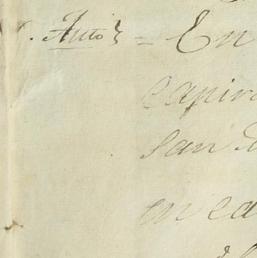 Auto } = En
capira
san
en ca